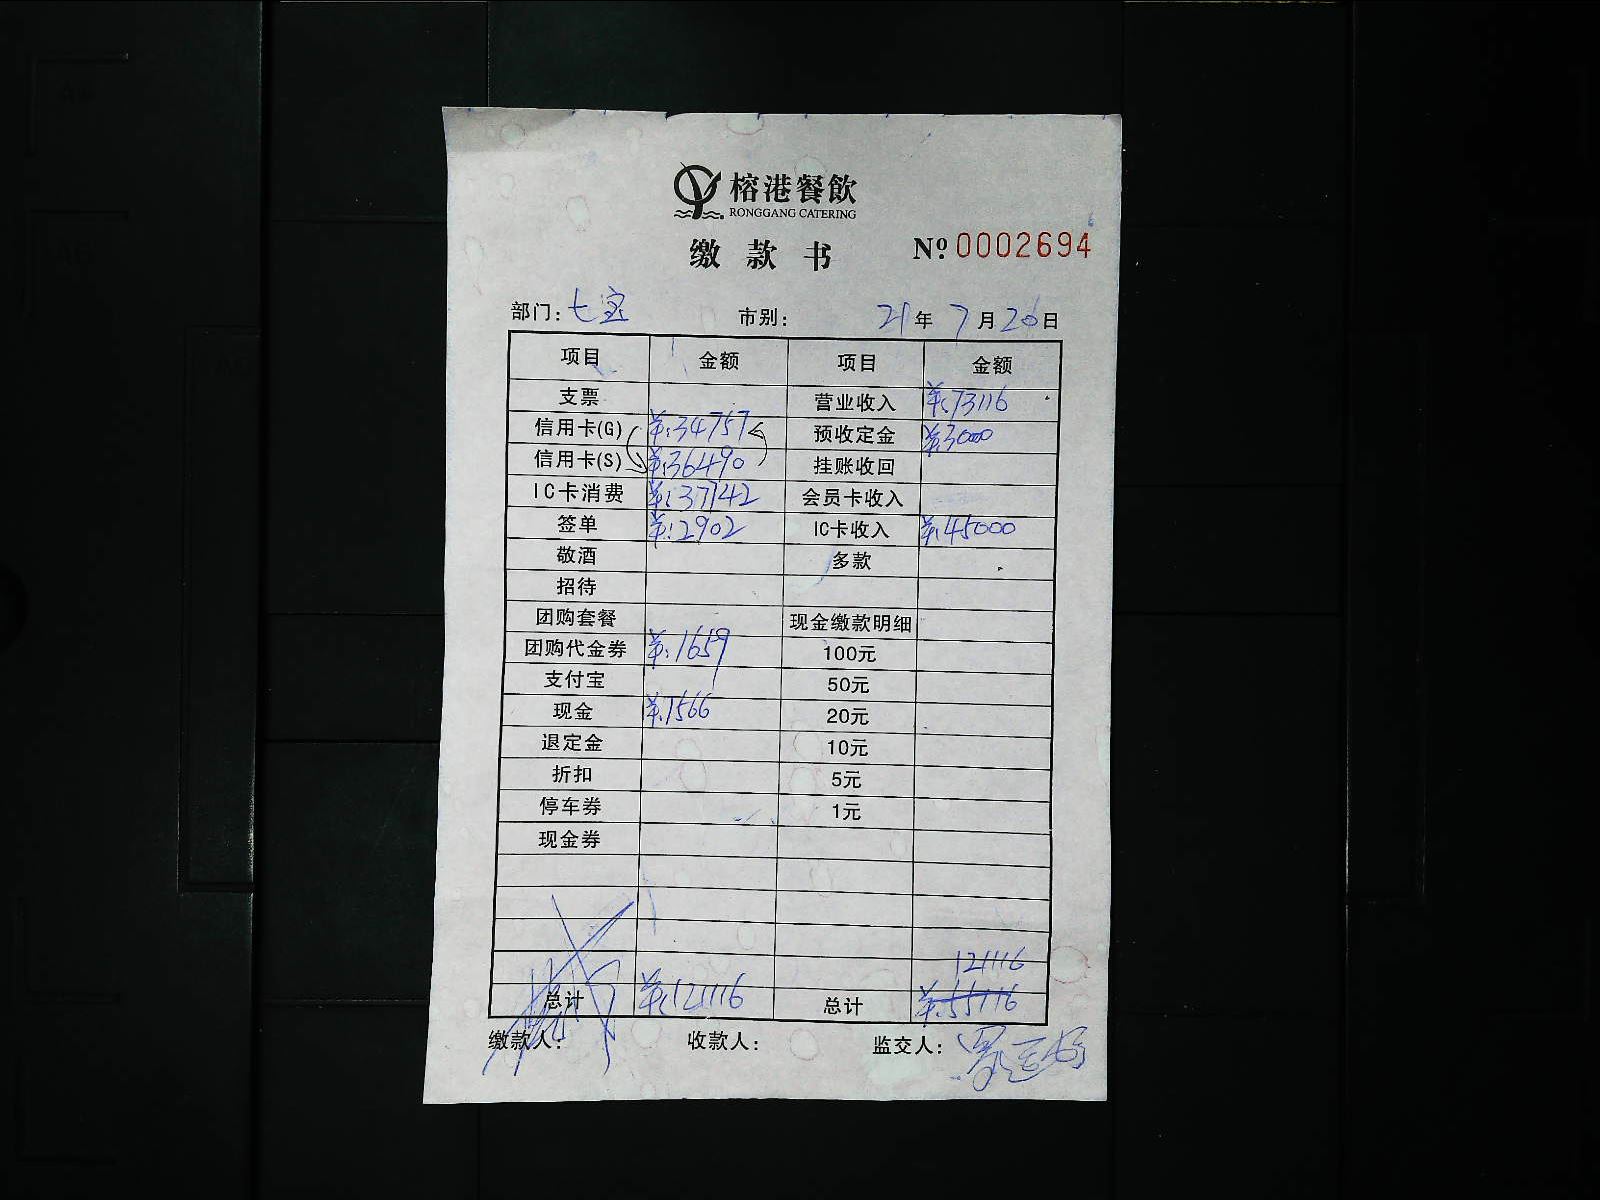 榕港餐飲
RONGGANG CATERING
缴款书 Nº 0002694
部门: 七宝 市别: 21年7月26日
项目 金额 项目 金额
支票 营业收入 ¥:73116
信用卡(G) ¥:34757 预收定金 ¥:3000
信用卡(S) ¥:36490 挂账收回
IC卡消费 ¥:37742 会员卡收入
签单 ¥:2902 IC卡收入 ¥:45000
敬酒 多款
招待
团购套餐 现金缴款明细
团购代金券 ¥:1659 100元
支付宝 50元
现金 ¥:7566 20元
退定金 10元
折扣 5元
停车券 1元
现金券
121116
总计 ¥:121116 总计 ¥:55116
缴款人: 收款人: 监交人: